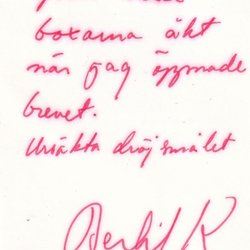 boxarna åkt
när jag öppnade
brevet.
Ursäkta dröjsmålet